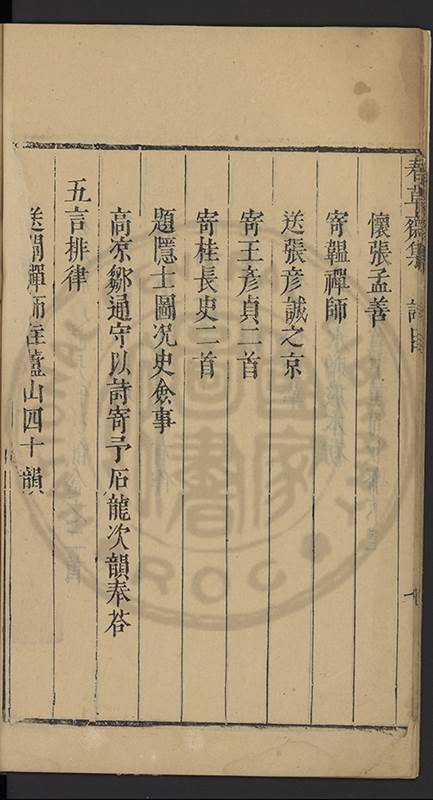 春草齋集 詩目
懷張孟善
寄韞禪師
送張彥誠之京
寄王彥貞二首
寄桂長史二首
題隱士圖况史僉事
高凉鄒通守以詩寄予石龍次韻奉荅
五言排律
送闍禪師住廬山四十韻